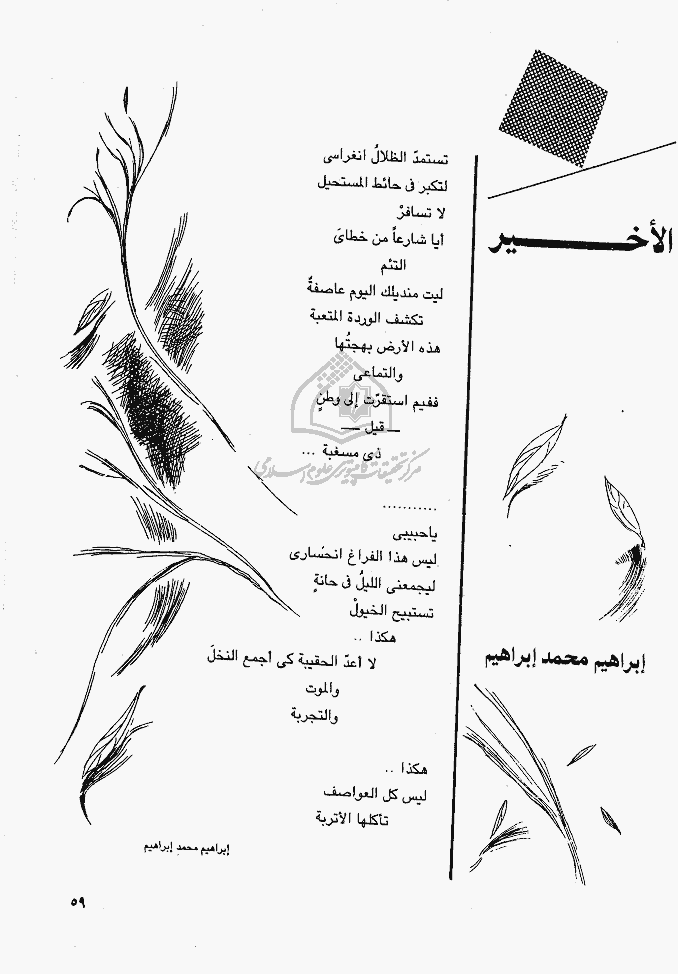 الأخيـــــر
إبراهيم محمد إبراهيم
تستمدّ الظلالُ انغراسى
لتكبر فى حائط المستحيل
لا تسافرْ
أيا شارعاً من خطاىَ
التئم
ليت منديلك اليوم عاصفةٌ
تكشف الوردة المتعبة
هذه الأرض بهجتُها
والتماعى
ففيم استقرّت إلى وطنٍ
— قيل —
ذى مسغبة ...
...........
ياحبيبى
ليس هذا الفراغ انحسارى
ليجمعنى الليلُ فى حانةٍ
تستبيح الخيولْ
هكذا ..
لا أعدّ الحقيبة كى أجمع النخلَ
والموت
والتجربة
هكذا ..
ليس كل العواصف
تأكلها الأتربة
إبراهيم محمد إبراهيم
٥٩
مركز تحقیقات کامپیوتری علوم اسلامی